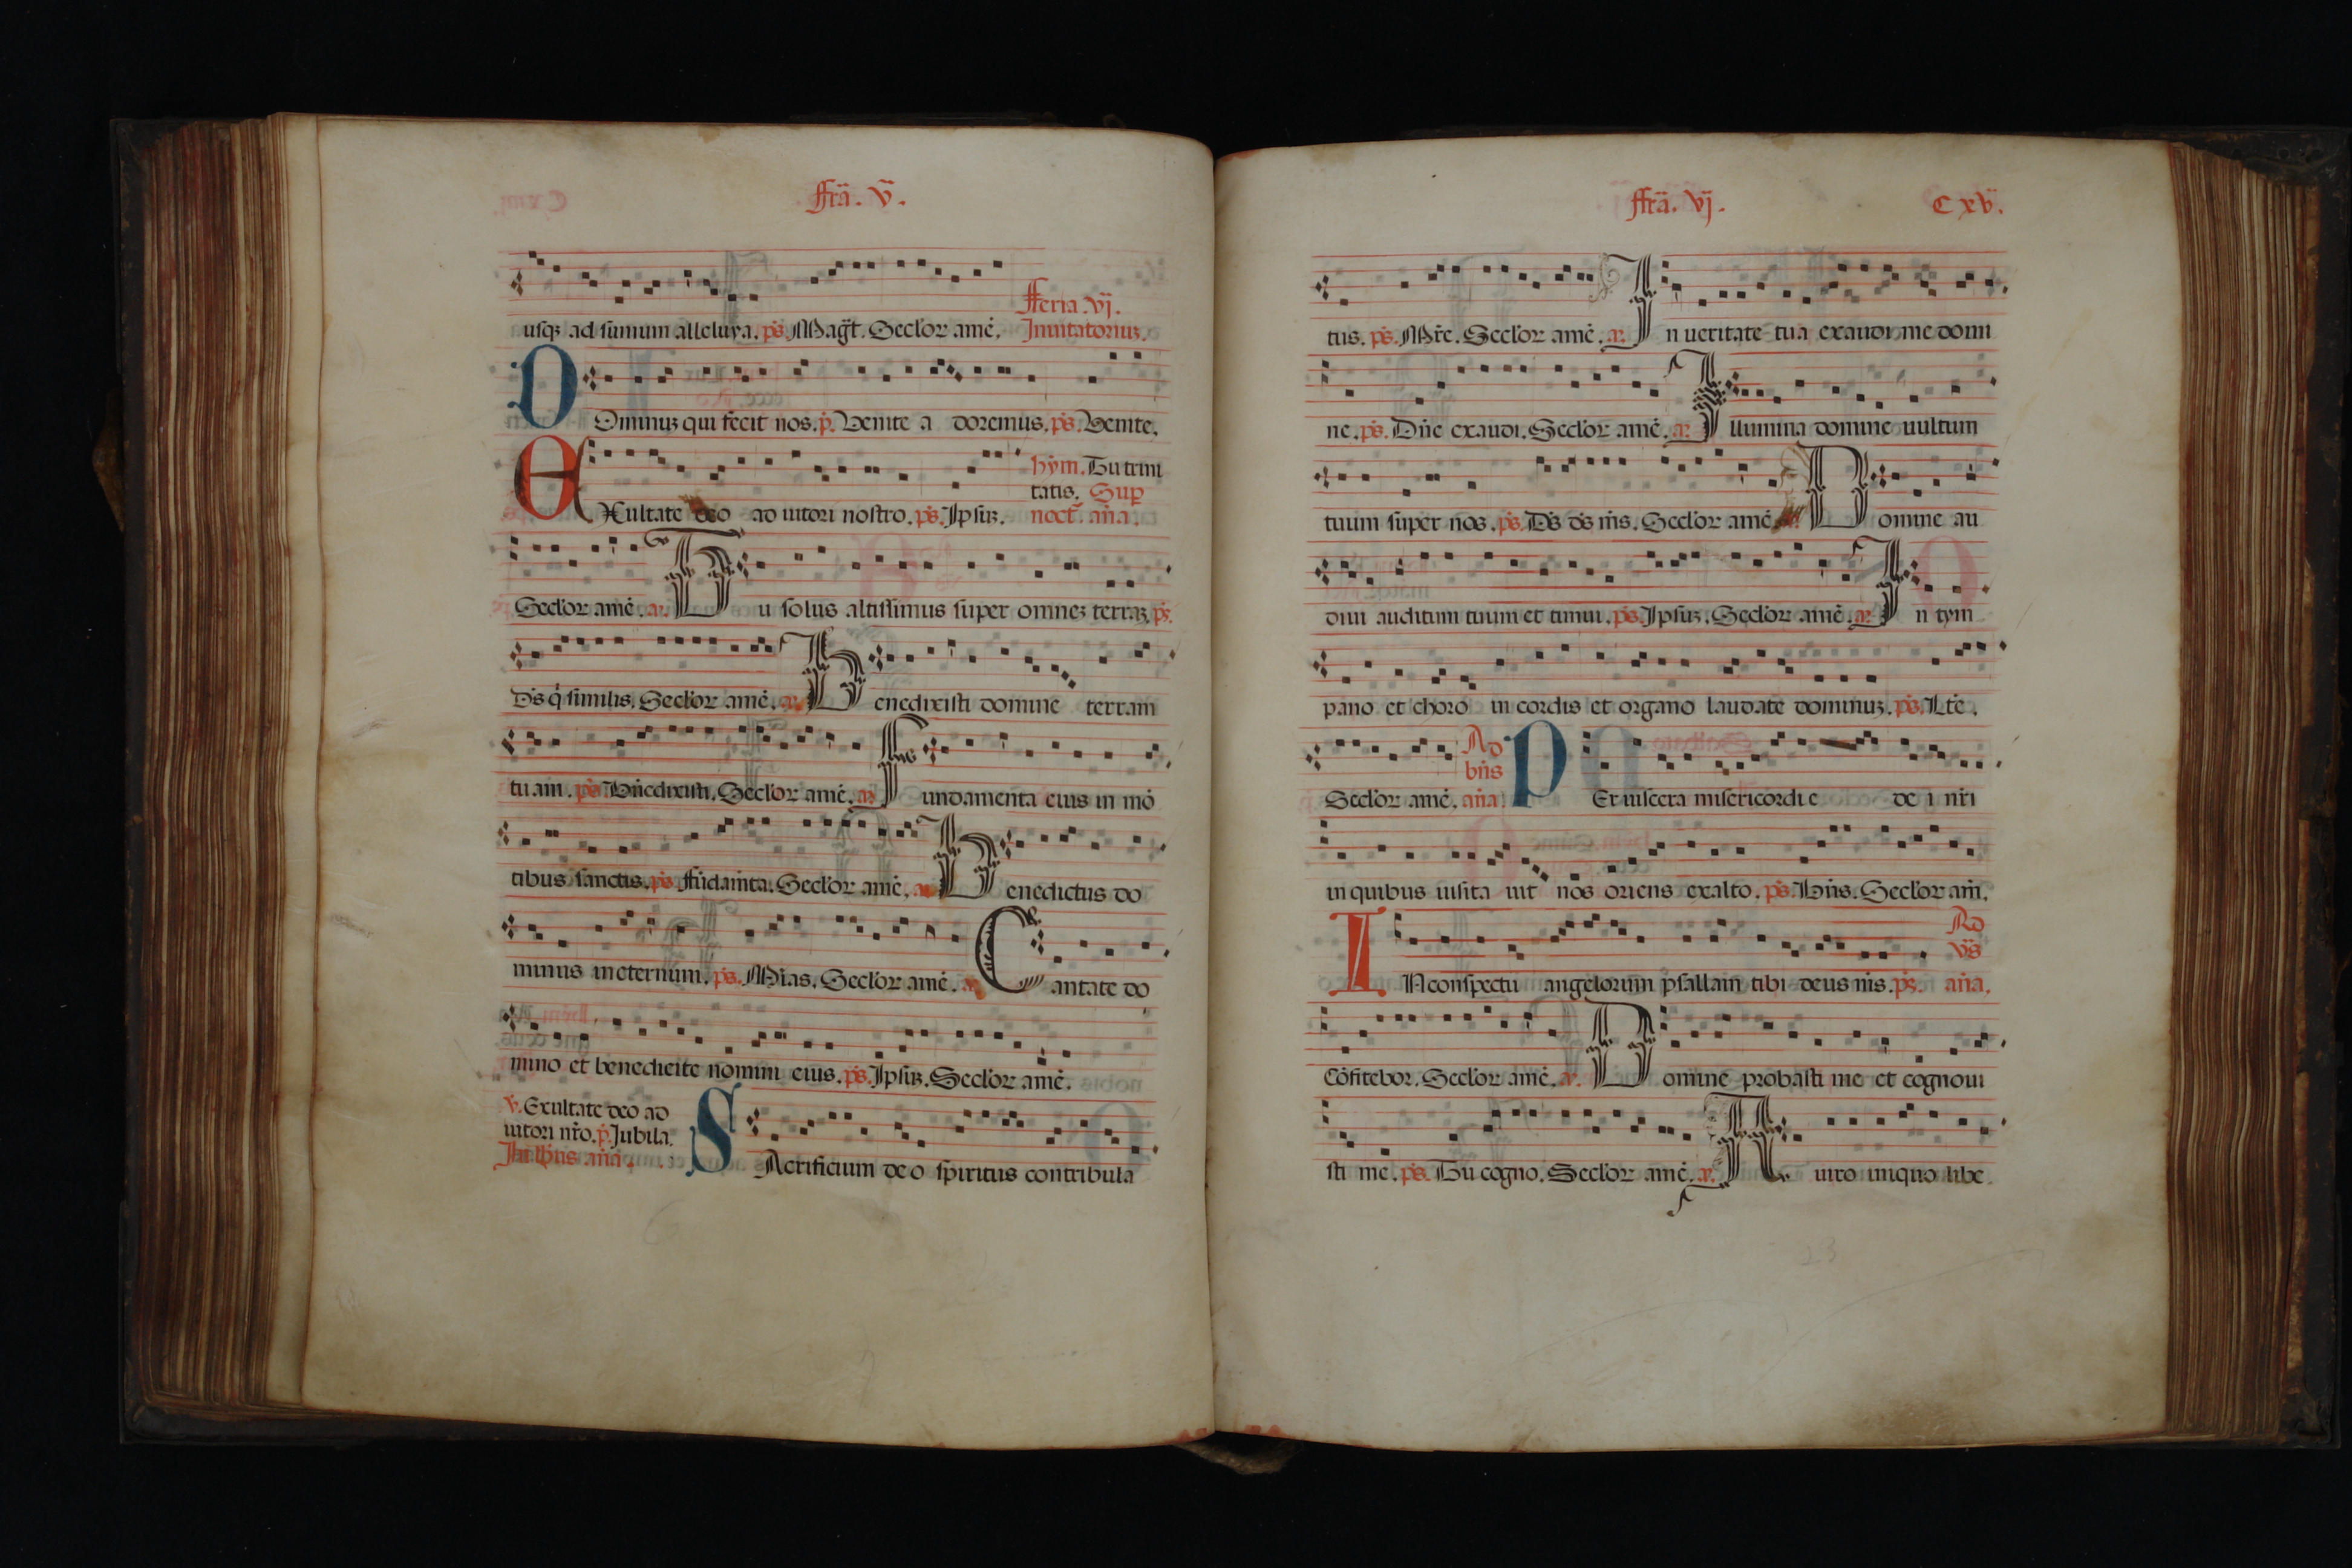 ffrā. v̄.
usqꝫ ad sumum alleluya. ps̄. Magt̄. Secl'or amē.
fferia. vj.
Inuitatoriuꝫ.
DOminuꝫ qui fecit nos. p̄. Venite a doremus. ps̄. Venite.
EXultate deo ad iutori nostro. ps̄. Ipsuꝫ.
hym̄. Tu trini
tatis. Sup
noct̄. an̄a.
Secl'or amē. a. Tu solus altissimus super omneꝫ terraꝫ. ps̄.
Ds̄ q̄ similis. Secl'or amē. a. Benedixisti domine terram
tuam. ps̄. Bn̄edixisti. Secl'or amē. a. Fundamenta eius in mō
tibus sanctis. ps̄. Fūdam̄ta. Secl'or amē. a. Benedictus do
minus in eternum. ps̄. Mīas. Secl'or amē. a. Cantate do
mino et benedicite nomini eius. ps̄. Ipsuꝫ. Secl'or amē.
v. Exultate deo ad
iutori nr̄o. p̄. Jubila.
In lbus an̄a.
SAcrificium deo spiritus contribula
ffrā. vj.
C xv.
tus. ps̄. Mr̄e. Secl'or amē. a. In ueritate tua exaudi me domi
ne. ps̄. Dn̄e exaudi. Secl'or amē. a. Illumina domine uultum
tuum super nos. ps̄. Ds̄ ds̄ m̄s. Secl'or amē. a. Domine au
diui auditum tuum et timui. ps̄. Ipsuꝫ. Secl'or amē. a. In tym
pano et choro in cordis et organo laudate dominuꝫ. ps̄. Lt̄e.
Secl'or amē. an̄a.
Ad
bn̄s
PEr uiscera misericordie de i nr̄i
in quibus uisita uit nos oriens exalto. ps̄. Bn̄s. Secl'or am̄.
IN conspectu angelorum psallam tibi deus m̄s. ps̄.
Ad
vs̄
an̄a.
Cōfitebor. Secl'or amē. a. Domine probasti me et cognoui
sti me. ps̄. Tu cogno. Secl'or amē. a. A uiro iniquo libe